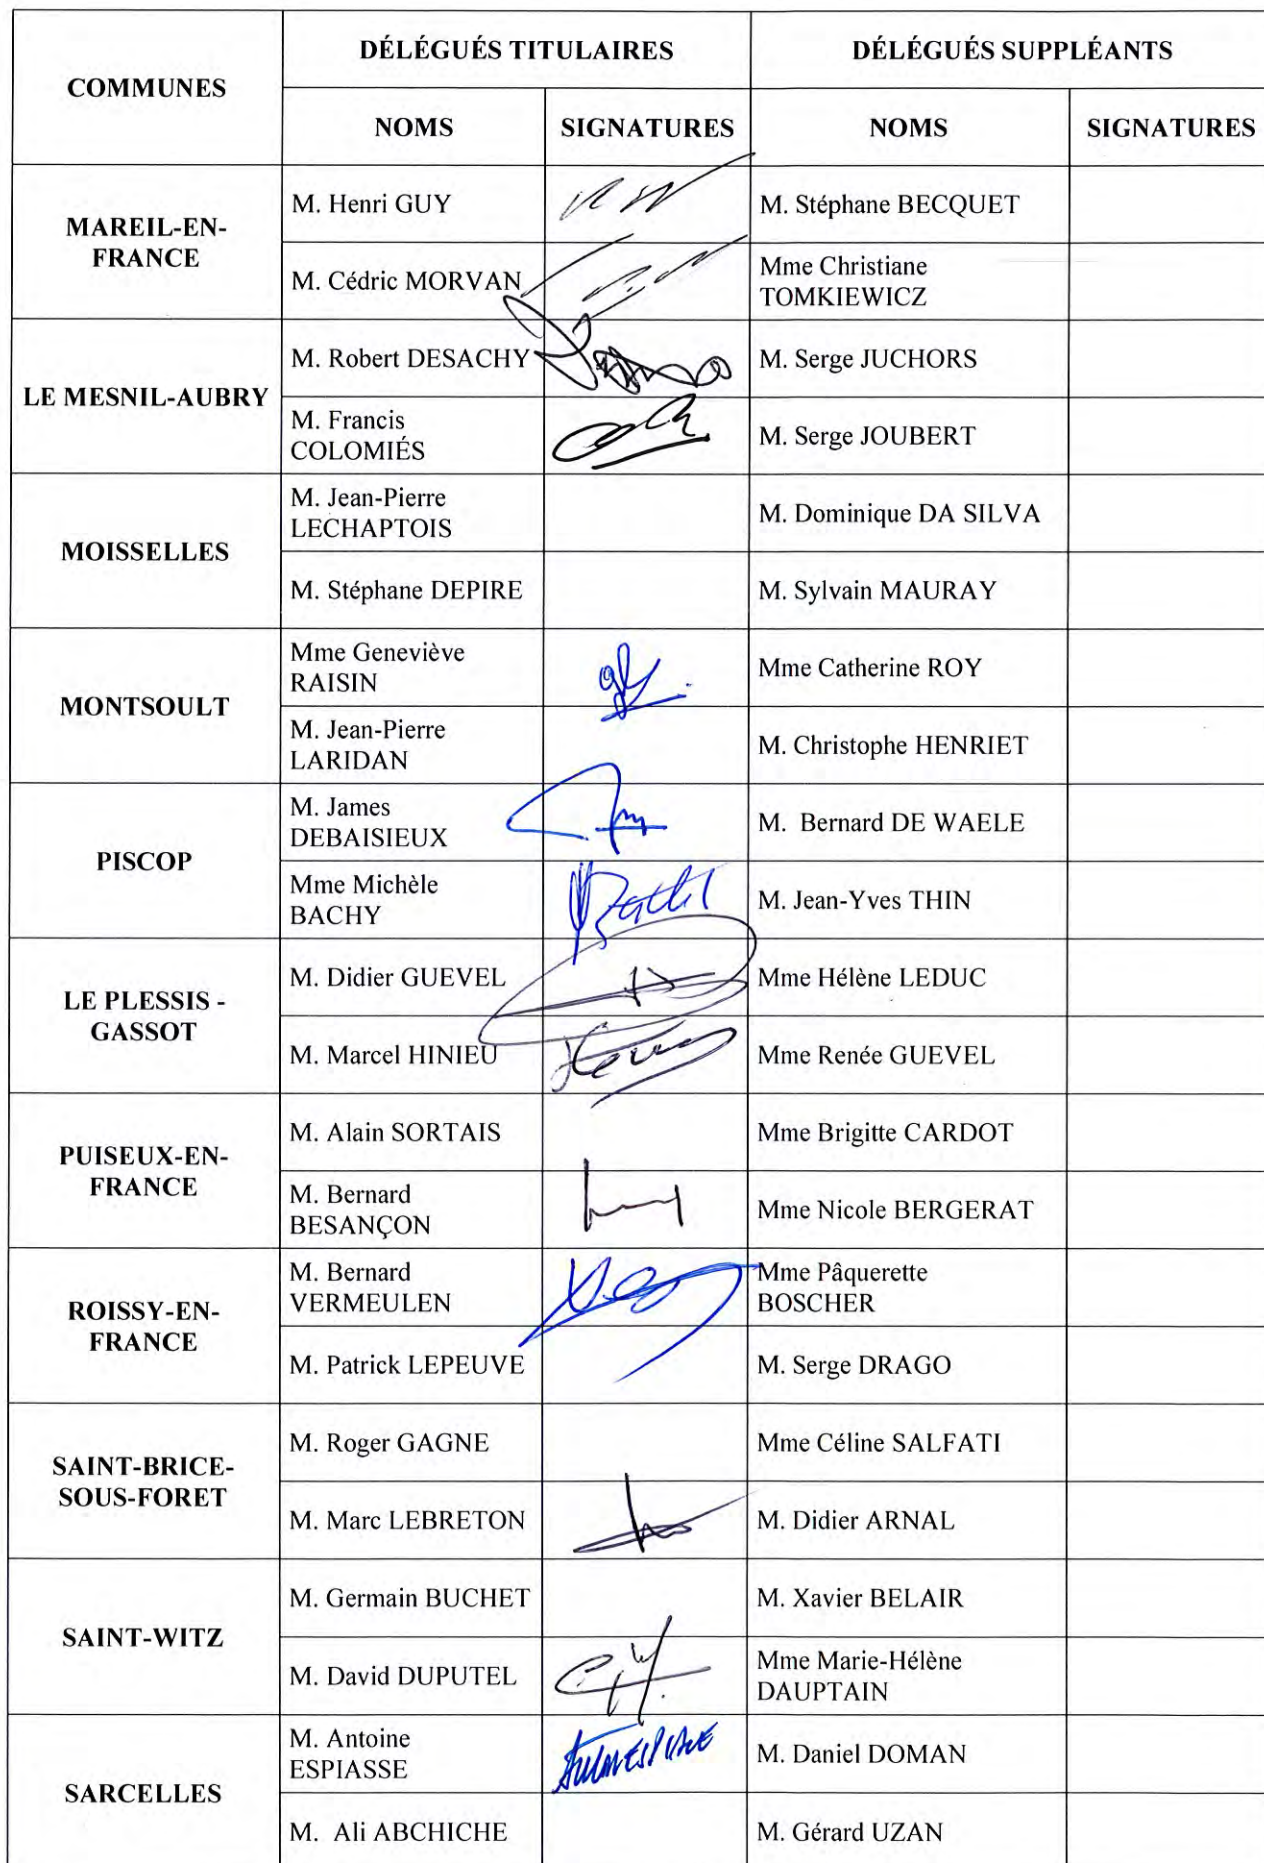 COMMUNES
DÉLÉGUÉS TITULAIRES
DÉLÉGUÉS SUPPLÉANTS
NOMS
SIGNATURES
NOMS
SIGNATURES
MAREIL-EN-
FRANCE
M. Henri GUY
M. Stéphane BECQUET
M. Cédric MORVAN
Mme Christiane
TOMKIEWICZ
LE MESNIL-AUBRY
M. Robert DESACHY
M. Serge JUCHORS
M. Francis
COLOMIÉS
M. Serge JOUBERT
MOISSELLES
M. Jean-Pierre
LECHAPTOIS
M. Dominique DA SILVA
M. Stéphane DEPIRE
M. Sylvain MAURAY
MONTSOULT
Mme Geneviève
RAISIN
Mme Catherine ROY
M. Jean-Pierre
LARIDAN
M. Christophe HENRIET
PISCOP
M. James
DEBAISIEUX
M. Bernard DE WAELE
Mme Michèle
BACHY
M. Jean-Yves THIN
LE PLESSIS -
GASSOT
M. Didier GUEVEL
Mme Hélène LEDUC
M. Marcel HINIEU
Mme Renée GUEVEL
PUISEUX-EN-
FRANCE
M. Alain SORTAIS
Mme Brigitte CARDOT
M. Bernard
BESANÇON
Mme Nicole BERGERAT
ROISSY-EN-
FRANCE
M. Bernard
VERMEULEN
Mme Pâquerette
BOSCHER
M. Patrick LEPEUVE
M. Serge DRAGO
SAINT-BRICE-
SOUS-FORET
M. Roger GAGNE
Mme Céline SALFATI
M. Marc LEBRETON
M. Didier ARNAL
SAINT-WITZ
M. Germain BUCHET
M. Xavier BELAIR
M. David DUPUTEL
Mme Marie-Hélène
DAUPTAIN
SARCELLES
M. Antoine
ESPIASSE
M. Daniel DOMAN
M. Ali ABCHICHE
M. Gérard UZAN